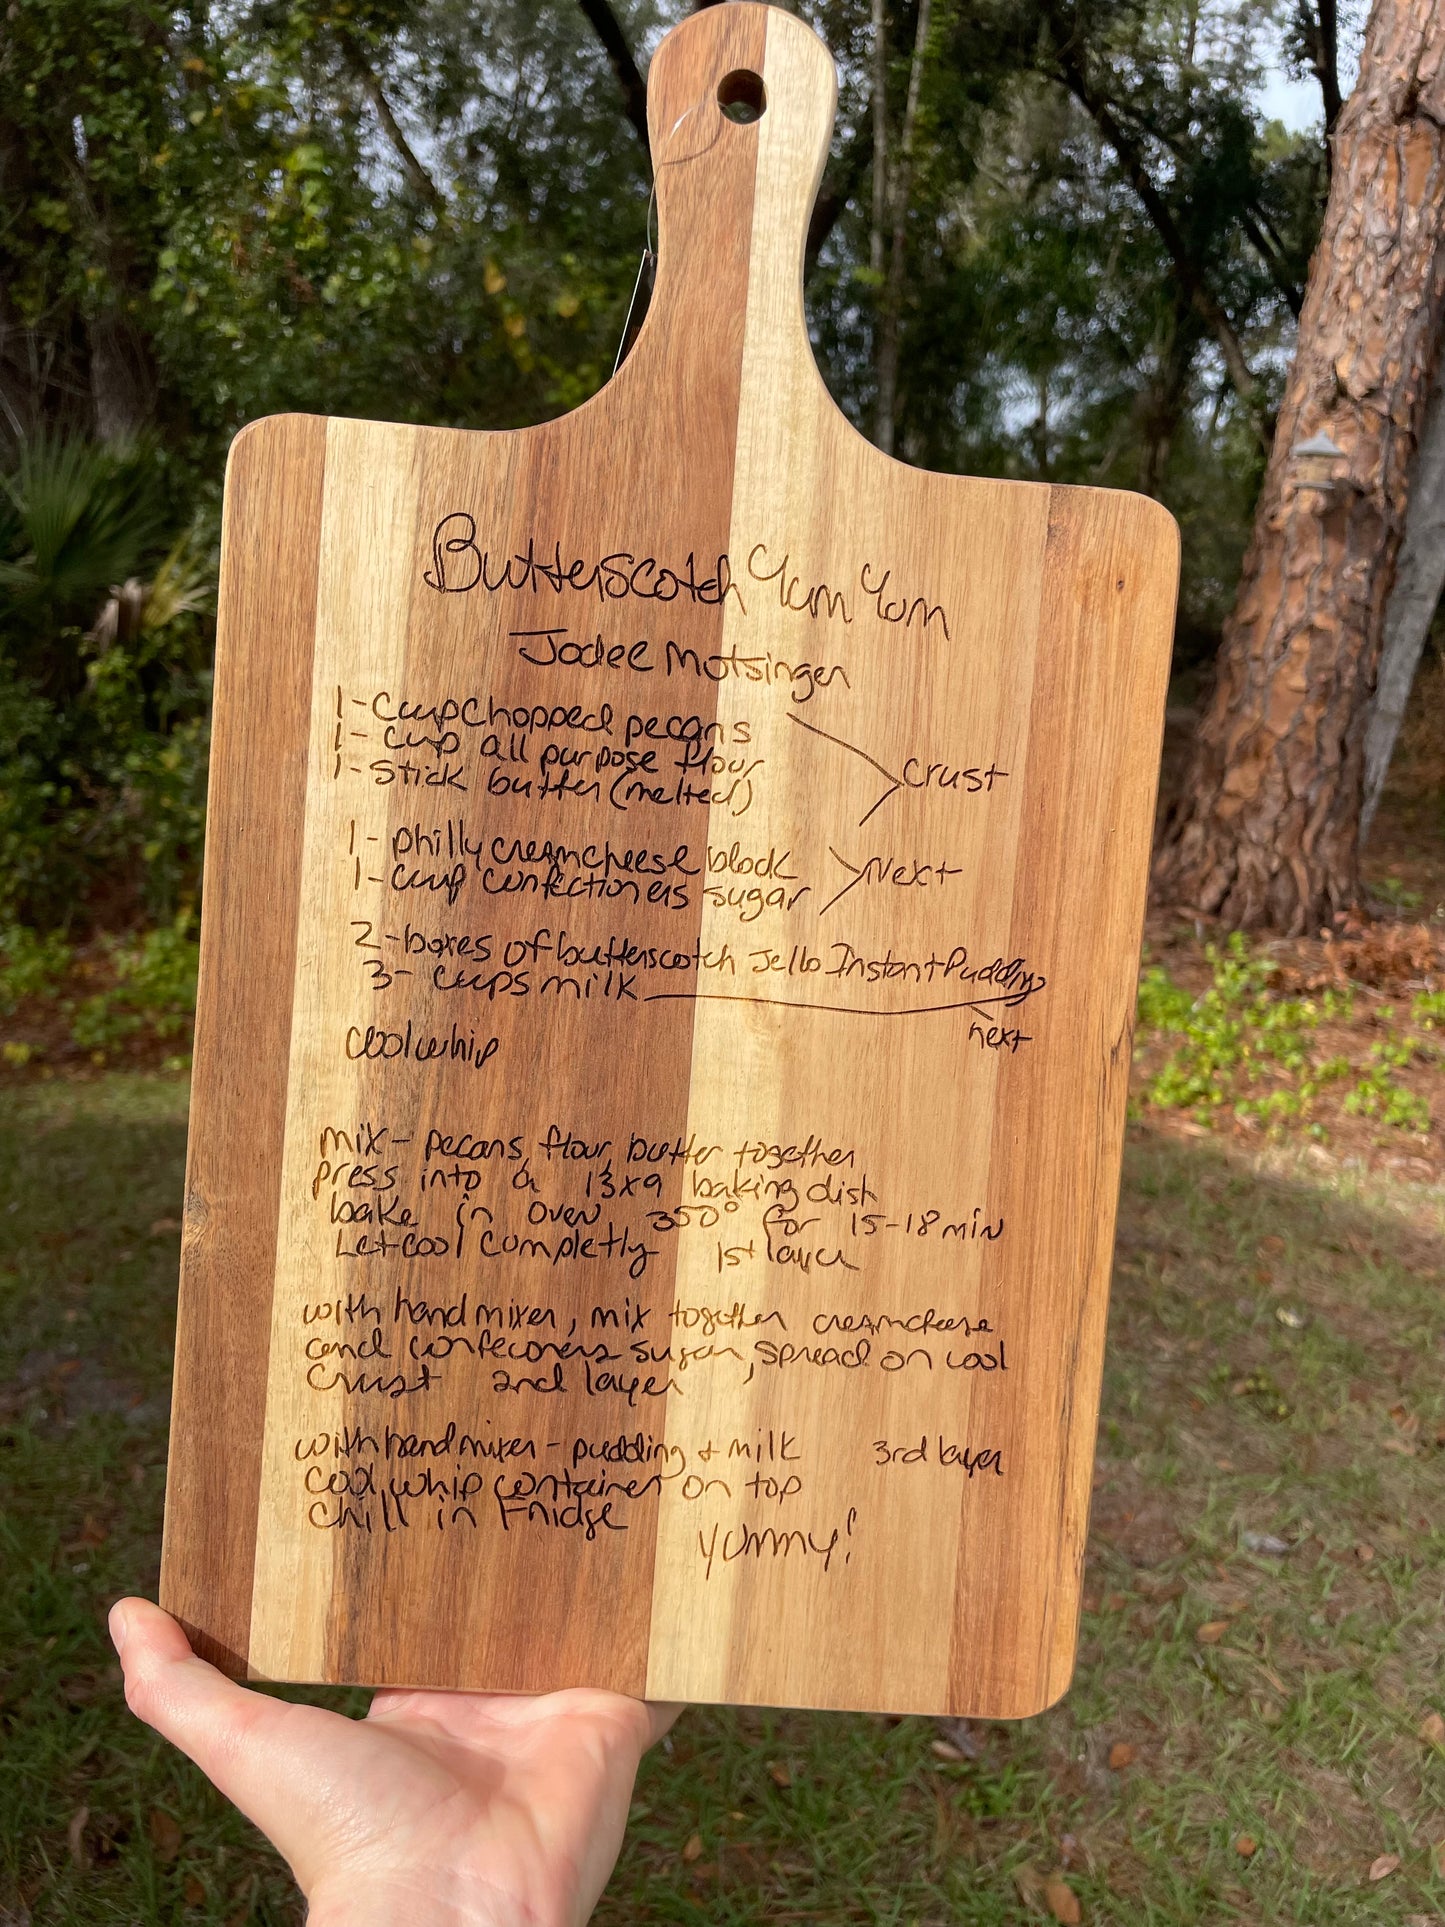 Butterscotch Yum Yum
Jodee Motsinger
1-cup chopped pecans
1-cup all purpose flour
1-stick butter (melted)
Crust
1-philly creamcheese block
1-cup confectioners sugar
Next
2-boxes of butterscotch Jello Instant Pudding
3- cups milk
next
coolwhip
mix- pecans, flour, butter together
press into a 13x9 baking dish
bake in oven 350° for 15-18 min
Let cool completly 1st layer
with hand mixer, mix together creamcheese
and confeconers sugar, spread on cool
Crust 2nd layer
with hand mixer - pudding + milk 3rd layer
cool whip container on top
chill in Fridge
yummy!